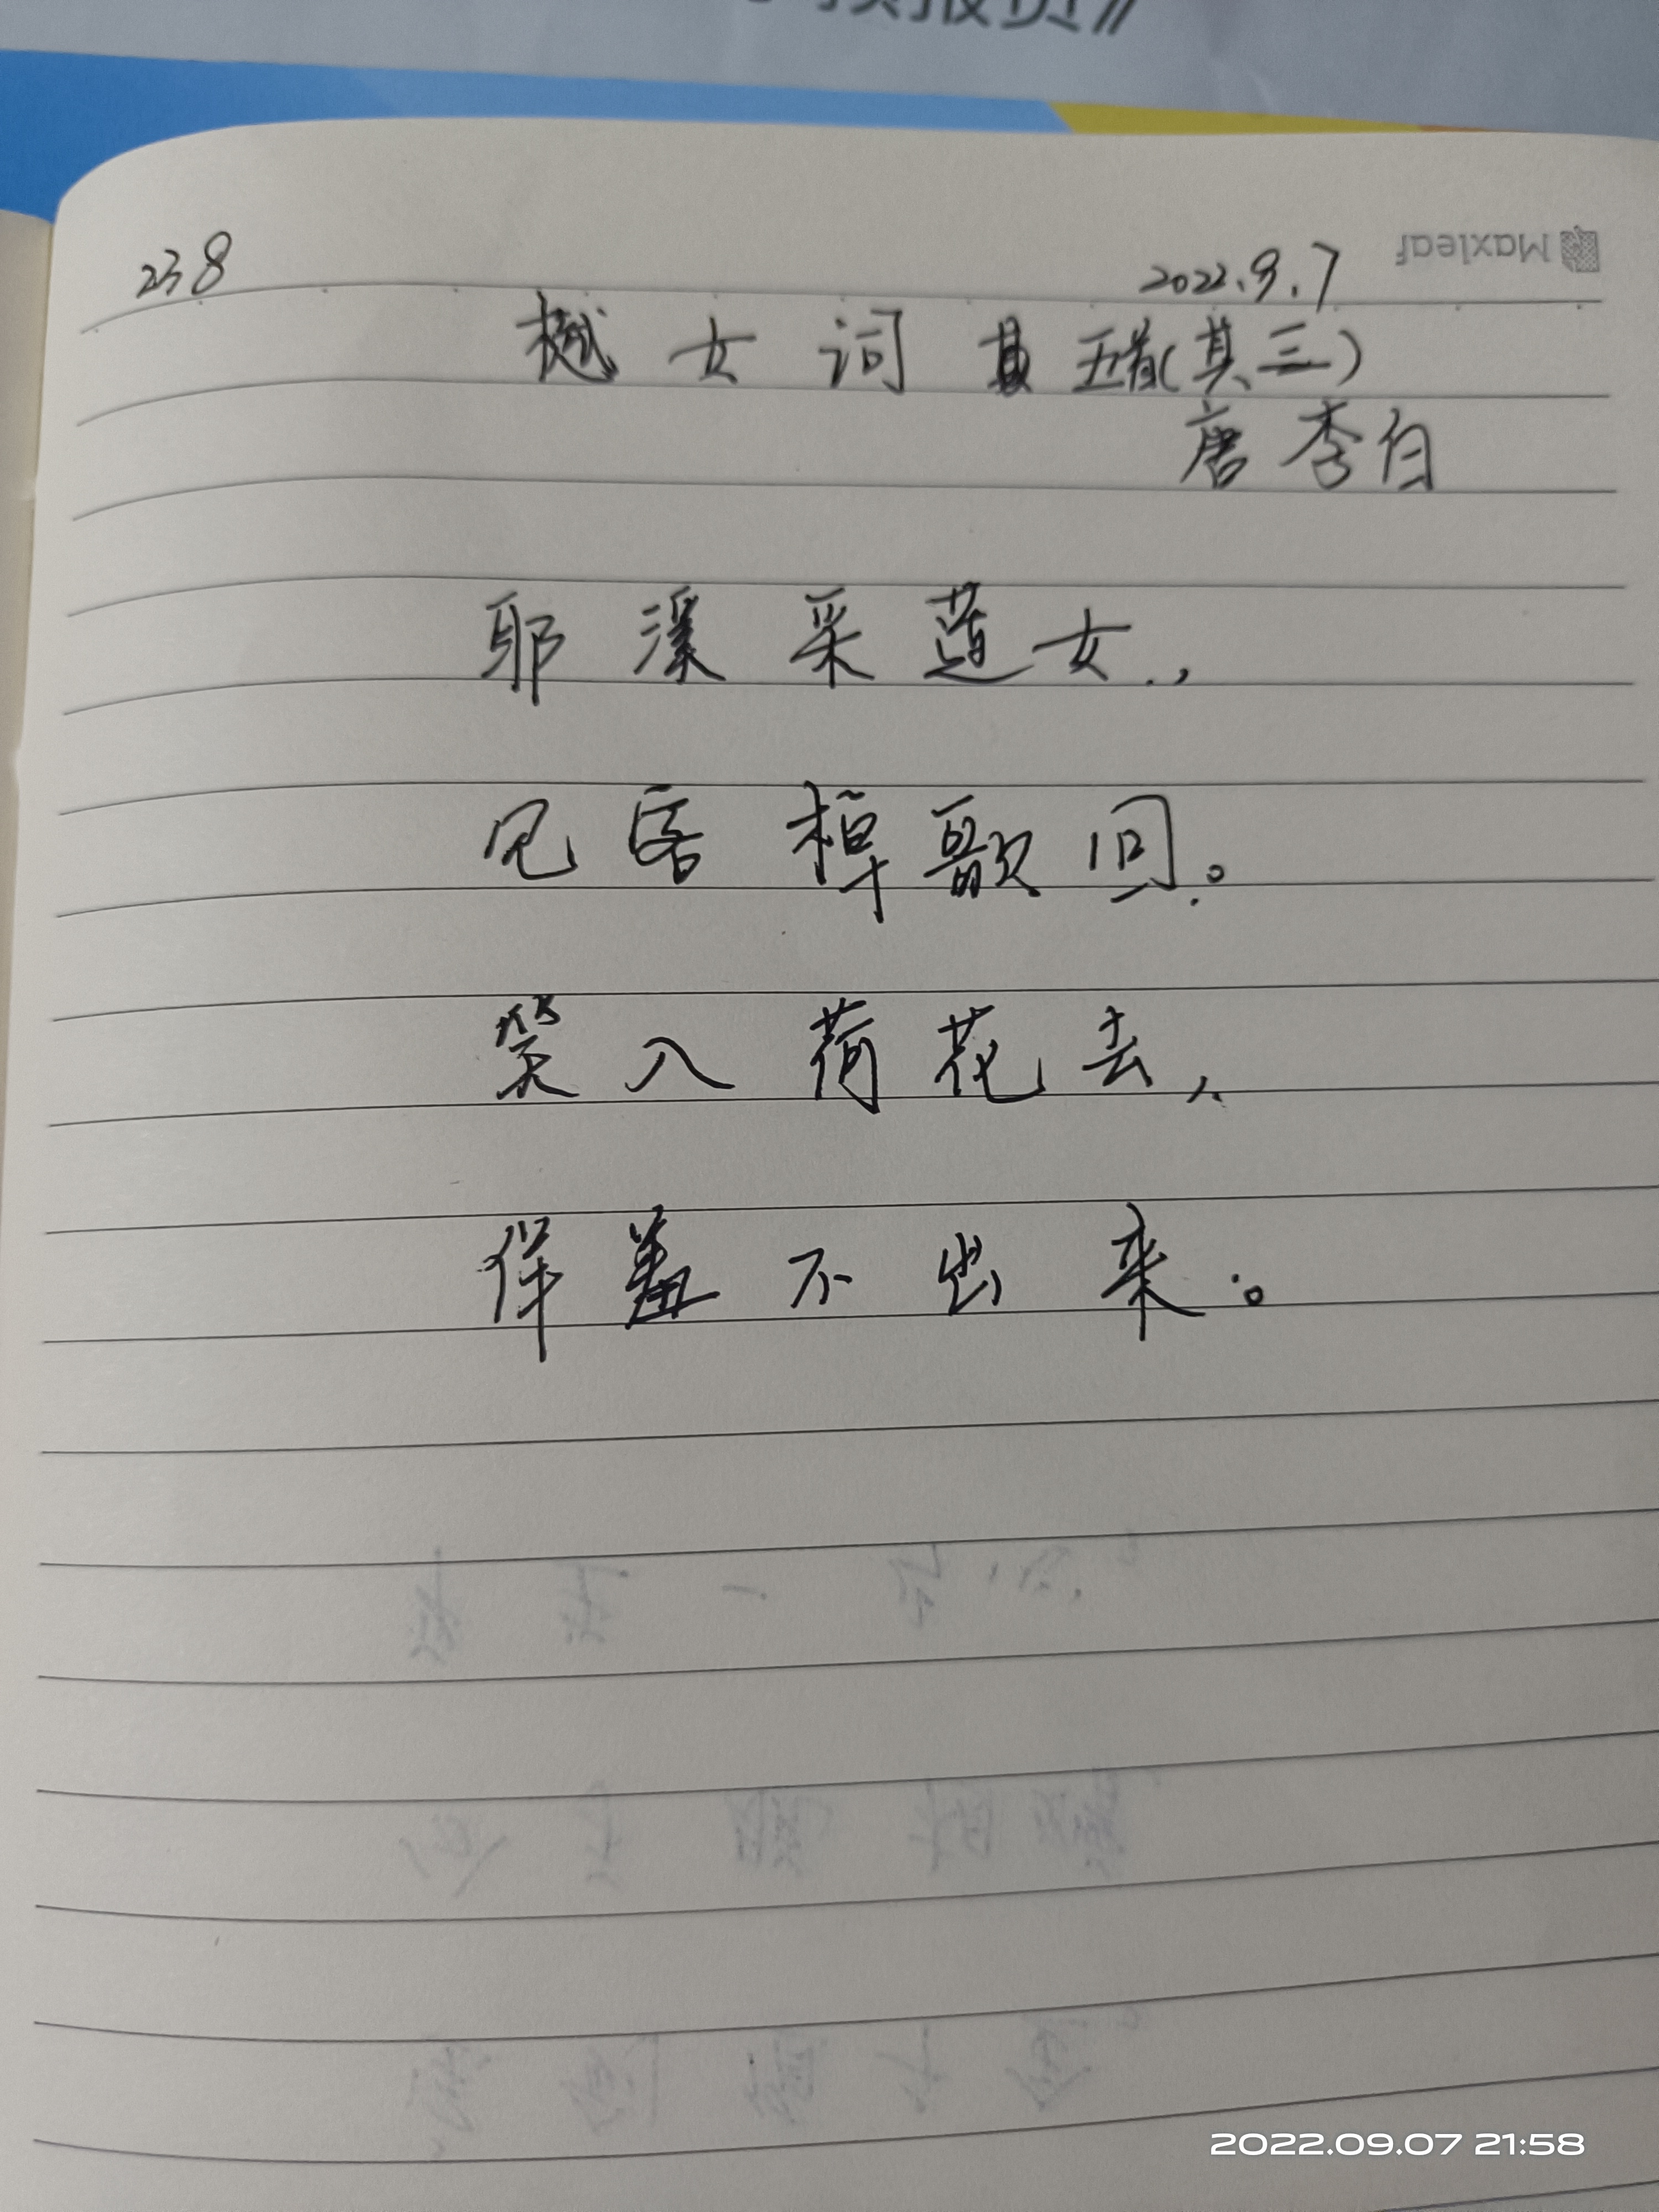 238
2022.9.7
Maxleaf
女词 五首(其三)
唐 李白
耶溪采莲女,
见客棹歌回。
笑入荷花去,
佯羞不出来。
2022.09.07 21:58